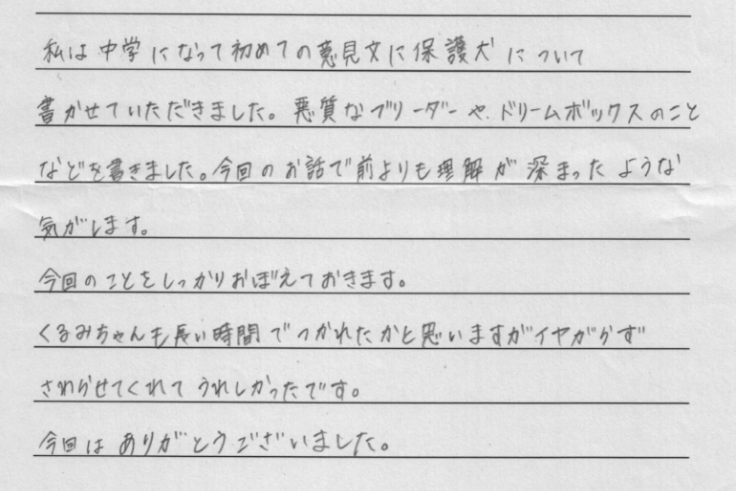 私は中学になって初めての意見文に保護犬について
書かせていただきました。悪質なブリーダーや、ドリームボックスのこと
などを書きました。今回のお話で前よりも理解が深まったような
気がします。
今回のことをしっかりおぼえておきます。
くるみちゃんも長い時間でつかれたかと思いますがイヤがらず
さわらせてくれてうれしかったです。
今回はありがとうございました。